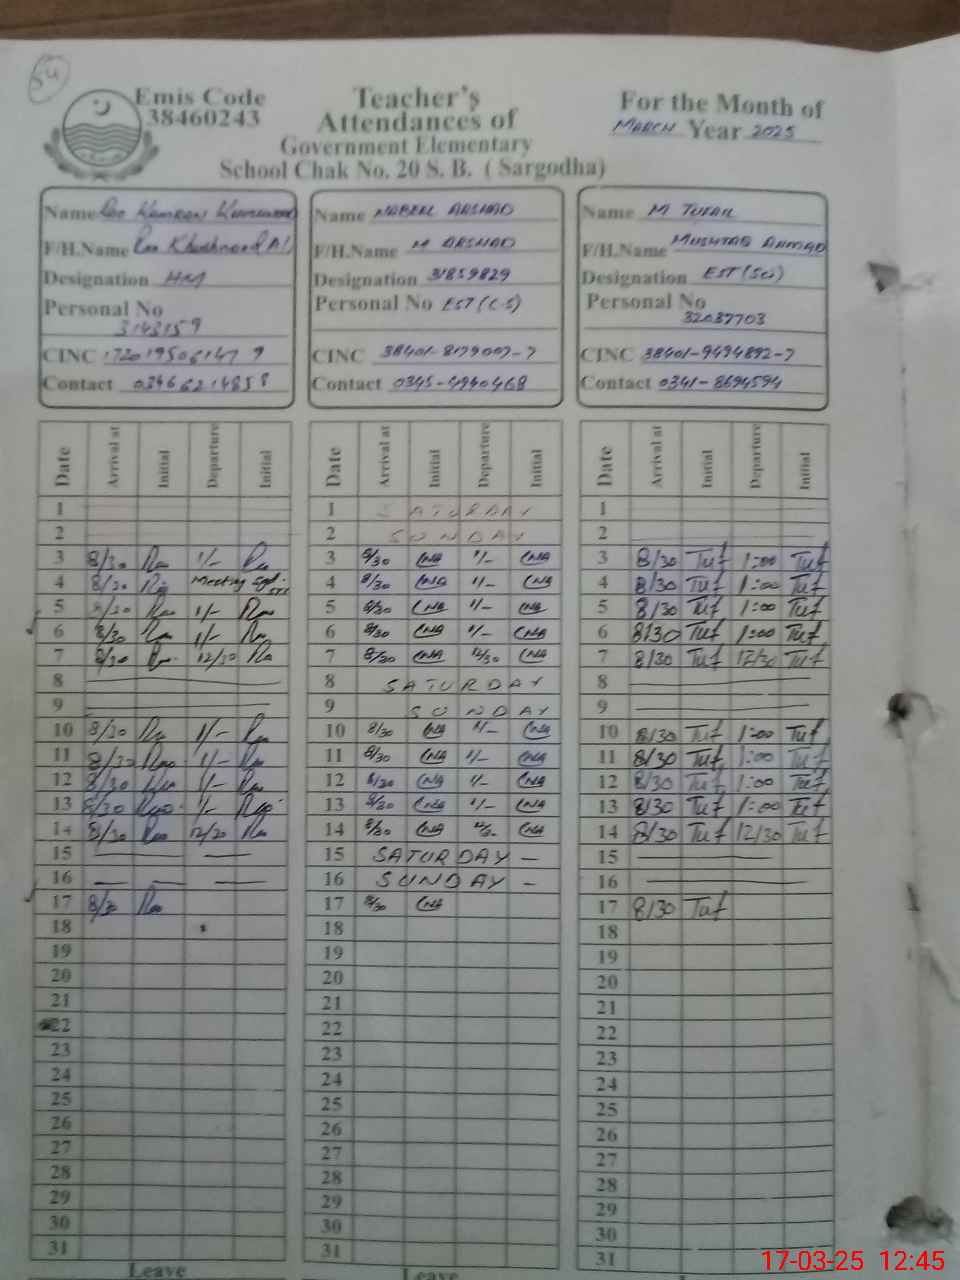 54
Emis Code
38460243
Teacher's
Attendances of
Government Elementary
School Chak No. 20 S. B. ( Sargodha)
For the Month of
MARCH Year 2025
Name Rao Kamran
F/H.Name Rao Khurshid Ali
Designation HM
Personal No
3143159
CINC
Contact 03466214858
Name NABEEL ARSHAD
F/H.Name M ARSHAD
Designation 31859829
Personal No EST (C-S)
CINC 38401-8179007-7
Contact 0345-4940468
Name M TUFAIL
F/H.Name MUSHTAQ AHMAD
Designation EST (SC)
Personal No
32037703
CINC 38401-9494892-7
Contact 0341-8694594
Date Arrival at Initial Departure Initial
1
2
3 8/30 Rao 1/- Rao
4 8/30 Rao Meeting
5 8/30 Rao 1/- Rao
6 8/30 Rao 1/- Rao
7 8/30 Rao 12/30 Rao
8
9
10 8/30 Rao 1/- Rao
11 8/30 Rao 1/- Rao
12 8/30 Rao 1/- Rao
13 8/30 Rao 1/- Rao
14 8/30 Rao 12/30 Rao
15
16
17 8/30 Rao
18
19
20
21
22
23
24
25
26
27
28
29
30
31
Leave
Date Arrival at Initial Departure Initial
1 SATURDAY
2 SUNDAY
3 8/30 CNA 1/- CNA
4 8/30 CNA 1/- CNA
5 8/30 CNA 1/- CNA
6 8/30 CNA 1/- CNA
7 8/30 CNA 12/30 CNA
8 SATURDAY
9 SUNDAY
10 8/30 CNA 1/- CNA
11 8/30 CNA 1/- CNA
12 8/30 CNA 1/- CNA
13 8/30 CNA 1/- CNA
14 8/30 CNA CNA
15 SATURDAY -
16 SUNDAY -
17 8/30 CNA
18
19
20
21
22
23
24
25
26
27
28
29
30
31
Leave
Date Arrival at Initial Departure Initial
1
2
3 8/30 Tuf 1:00 Tuf
4 8/30 Tuf 1:00 Tuf
5 8/30 Tuf 1:00 Tuf
6 8/30 Tuf 1:00 Tuf
7 8/30 Tuf 12/30 Tuf
8
9
10 8/30 Tuf 1:00 Tuf
11 8/30 Tuf 1:00 Tuf
12 8/30 Tuf 1:00 Tuf
13 8/30 Tuf 1:00 Tuf
14 8/30 Tuf 12/30 Tuf
15
16
17 8/30 Tuf
18
19
20
21
22
23
24
25
26
27
28
29
30
31
17-03-25 12:45